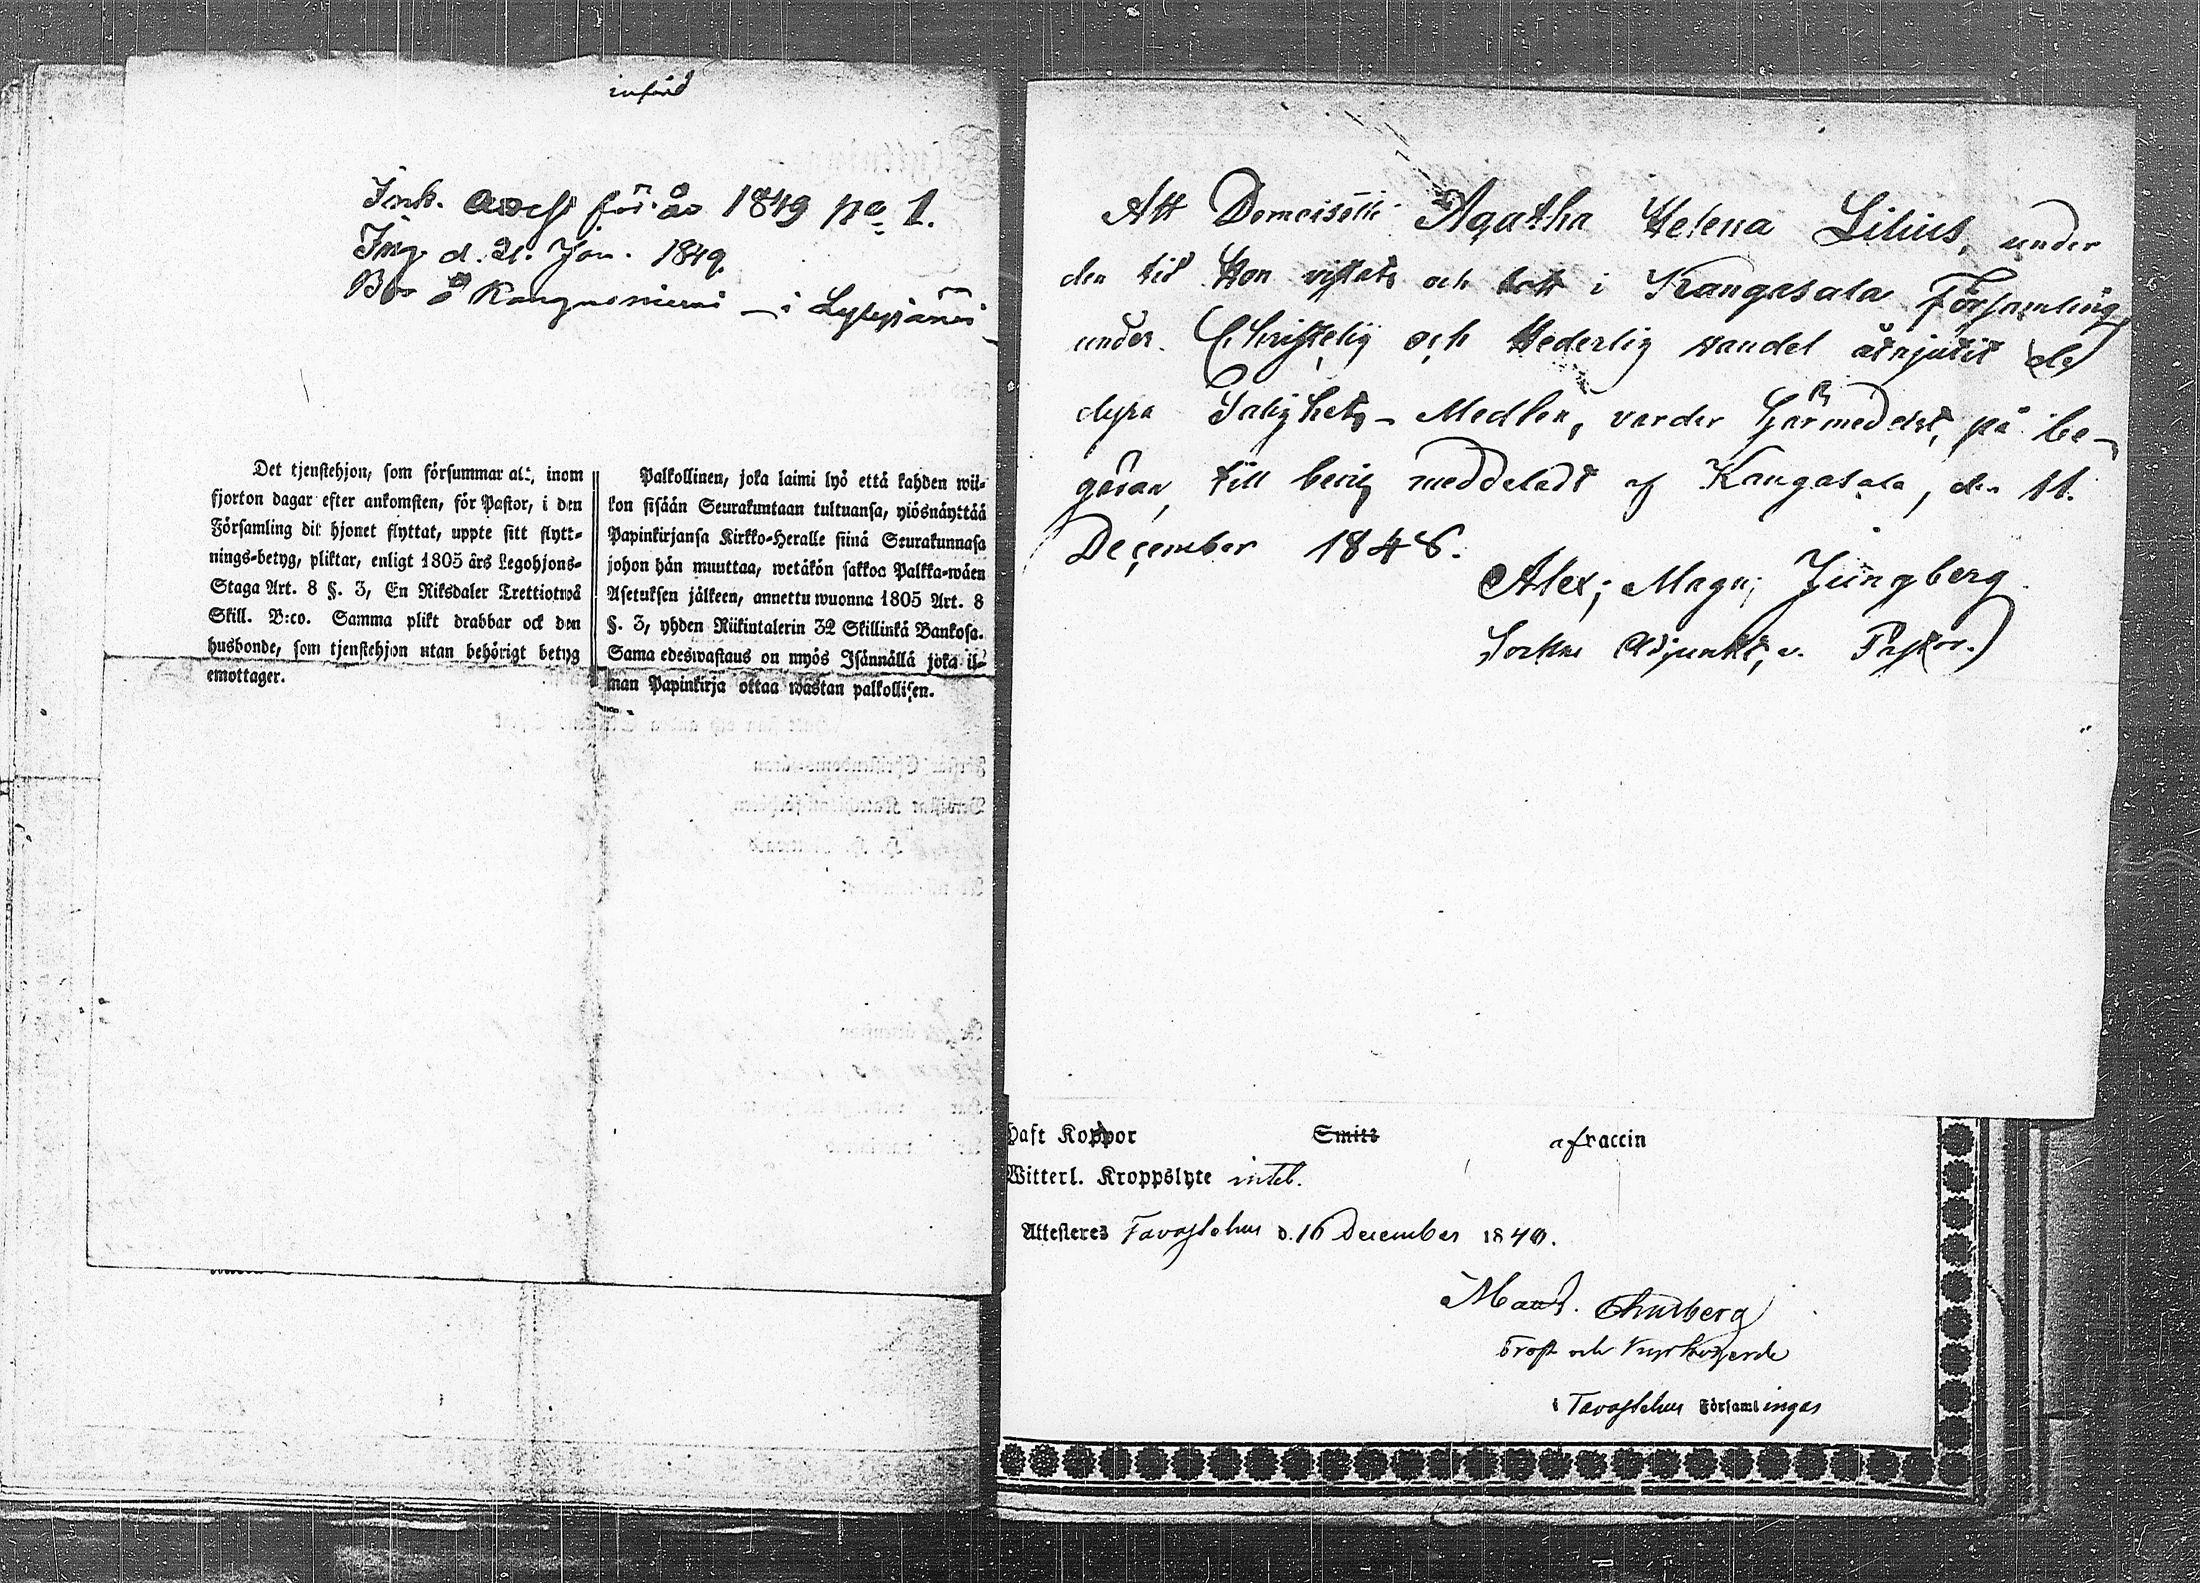 införd
Ink. attest för år 1849 No 1.
Ing. d. 21. Jan. 1849.
Bor å Kangasniemi — i Lylyjänei
Det tjenstehjon, som försummar att, inom
fjorton dagar efter ankomsten, för Pastor, i den
Församling dit hjonet flyttat, uppte sitt flytt-
nings-betyg, pliktar, enligt 1805 års Legohjons-
Staga Art. 8 §. 3, En Riksdaler Trettiotwå
Skill. B:co. Samma plikt drabbar ock den
husbonde, som tjenstehjon utan behörigt betyg
emottager.
Palkollinen, joka laimi lyö että kahden wii-
kon sisään Seurakuntaan tultuansa, yiösnäyttää
Papinkirjansa Kirkko-Heralle siinä Seurakunnasa
johon hän muuttaa, wetäkön sakkoa Palkka-wäen
Asetuksen jälkeen, annettu wuonna 1805 Art. 8
§. 3, yhden Riikintalerin 32 Skillinkä Bankosa.
Sama edeswastaus on myös Isännällä joka il-
man Papinkirja ottaa wastan palkollisen.
Att Demoiselle Agatha Helena Lilius, under
den tid Hon vistats och bott i Kangasala Församling
under Christelig och Hederlig vandel åtnjutit de
dyra Salighets-Medlen, varder härmedelst, på be-
gäran, till bevis meddeladt af Kangasala, den 11.
December 1848.
Alex; Magn; Jüngberg
Sockne Adjunkt, v. Pastor.
Haft Koppor Smitt af vaccin
Witterl. Kroppslyte intet.
Attesteres Tavastehus d. 16 December 1840.
Maur.
Prost och Kyrkoherde
i Tavastehus Församlingar